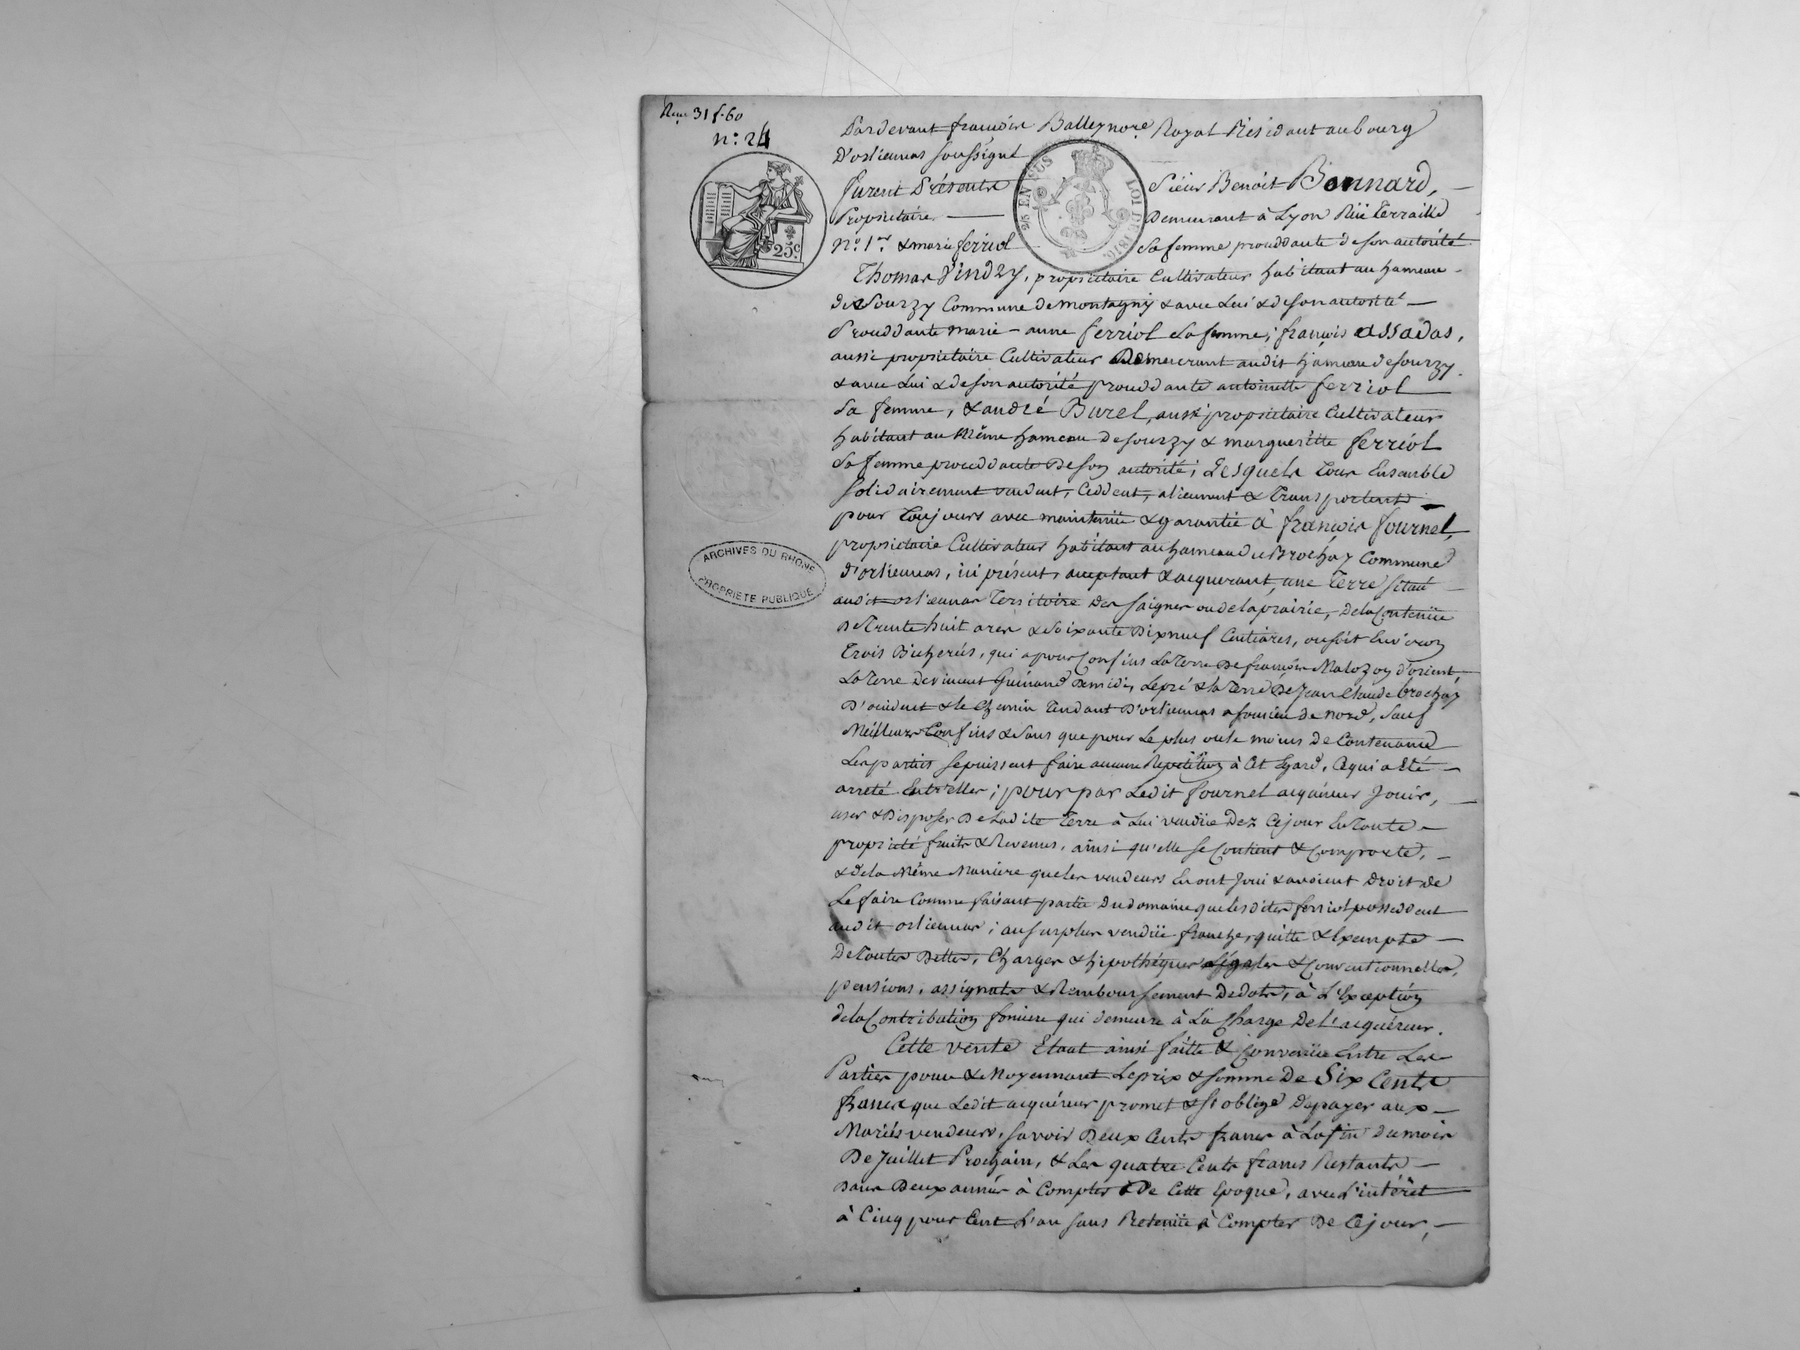 31 f. 60
n.° 24
25c.
25 EN SUS
LOI DE 1816.
Pardevant françois Balley no.re Royal Résidant au bourg
D'orlienas soussigné
furent Présents Sieur Benoît Bonnard, —
Propriétaire — Demeurant à Lyon Rüe Terraille
N.° 1.er & marie ferriol sa femme procédante de son autorité
Thomas Vindry, propriétaire Cultivateur habitant au hameau
de Sourzy Commune de montagny & avec Lui & de son autorité —
Procédante marie-anne ferriol sa femme; françois assadas,
aussi propriétaire Cultivateur Demeurant audit hameau de Sourzy
& avec Lui & de son autorité procédante antoinette ferriol
sa femme, & andré Burel, aussi propriétaire Cultivateur
habitant au Même hameau de sourzy & marguerite ferriol
sa femme procédante De son autorité; Lesquels tous Ensemble
Solidairement vendent, Cèddent, alienent & Transportent —
pour toujours avec maintenüe & garantie à françois fournel,
propriétaire Cultivateur habitant au hameau du Brochay Commune
d'orlienas, ici présent, acceptant & acquerant, une Terre située
audit orlienas Territoire Des saignes ou de la prairie, de la Contenüe
De Trente huit ares & Soixante Dixneuf Centiares, ou soit Environ
Trois Bicherées, qui a pour Confins La Terre De françois Malozon d'orient,
La Terre de vincent Guinand De midi, Le pré & la Terre De Jean Claude brochay
D'occident & le Chemin Tendant D'orlienas a fousieu de nord, Sauf
Meilleurs Confins & Sans que pour Le plus ou le moins de Contenance
Les parties se puissent faire aucune Répétition à Cet Egard, Ce qui a Eté —
arrêté Entr'elles; pour par Ledit fournel acquéreur Jouir, —
user & Disposer De Ladite Terre à Lui vendüe Dez Ce jour En Toute —
propriété fruits & Revenus, ainsi qu'elle se Contient & Comporte, —
& de la Même Manière que les vendeurs En ont Joui & avoient Droit de
Le faire Comme faisant partie Du domaine que les dites ferriol possèddent
audit orlienas; au surplus vendüe franche, quitte & Exempte —
De Toutes Dettes, Charges & hipothèques Légales & Conventionnelles,
pensions, assignats & Remboursement De dots, à L'Exception
de la Contribution fonciere qui demeure à La Charge De L'acquéreur.
Cette vente Etant ainsi faite & Convenüe Entre Les
Parties pour & Moyennant Le prix & somme De Six Cents
francs que Ledit acquéreur promet & s'oblige De payer aux —
Mariés vendeurs, savoir Deux Cents francs à La fin du mois
De Juillet Prochain, & Les quatre Cents francs Restants —
Dans Deux années à Compter De Cette Epoque, avec L'intérêt
à Cinq pour Cent L'an sans Retenüe à Compter De Ce jour, —
ARCHIVES DU RHONE
PROPRIETE PUBLIQUE